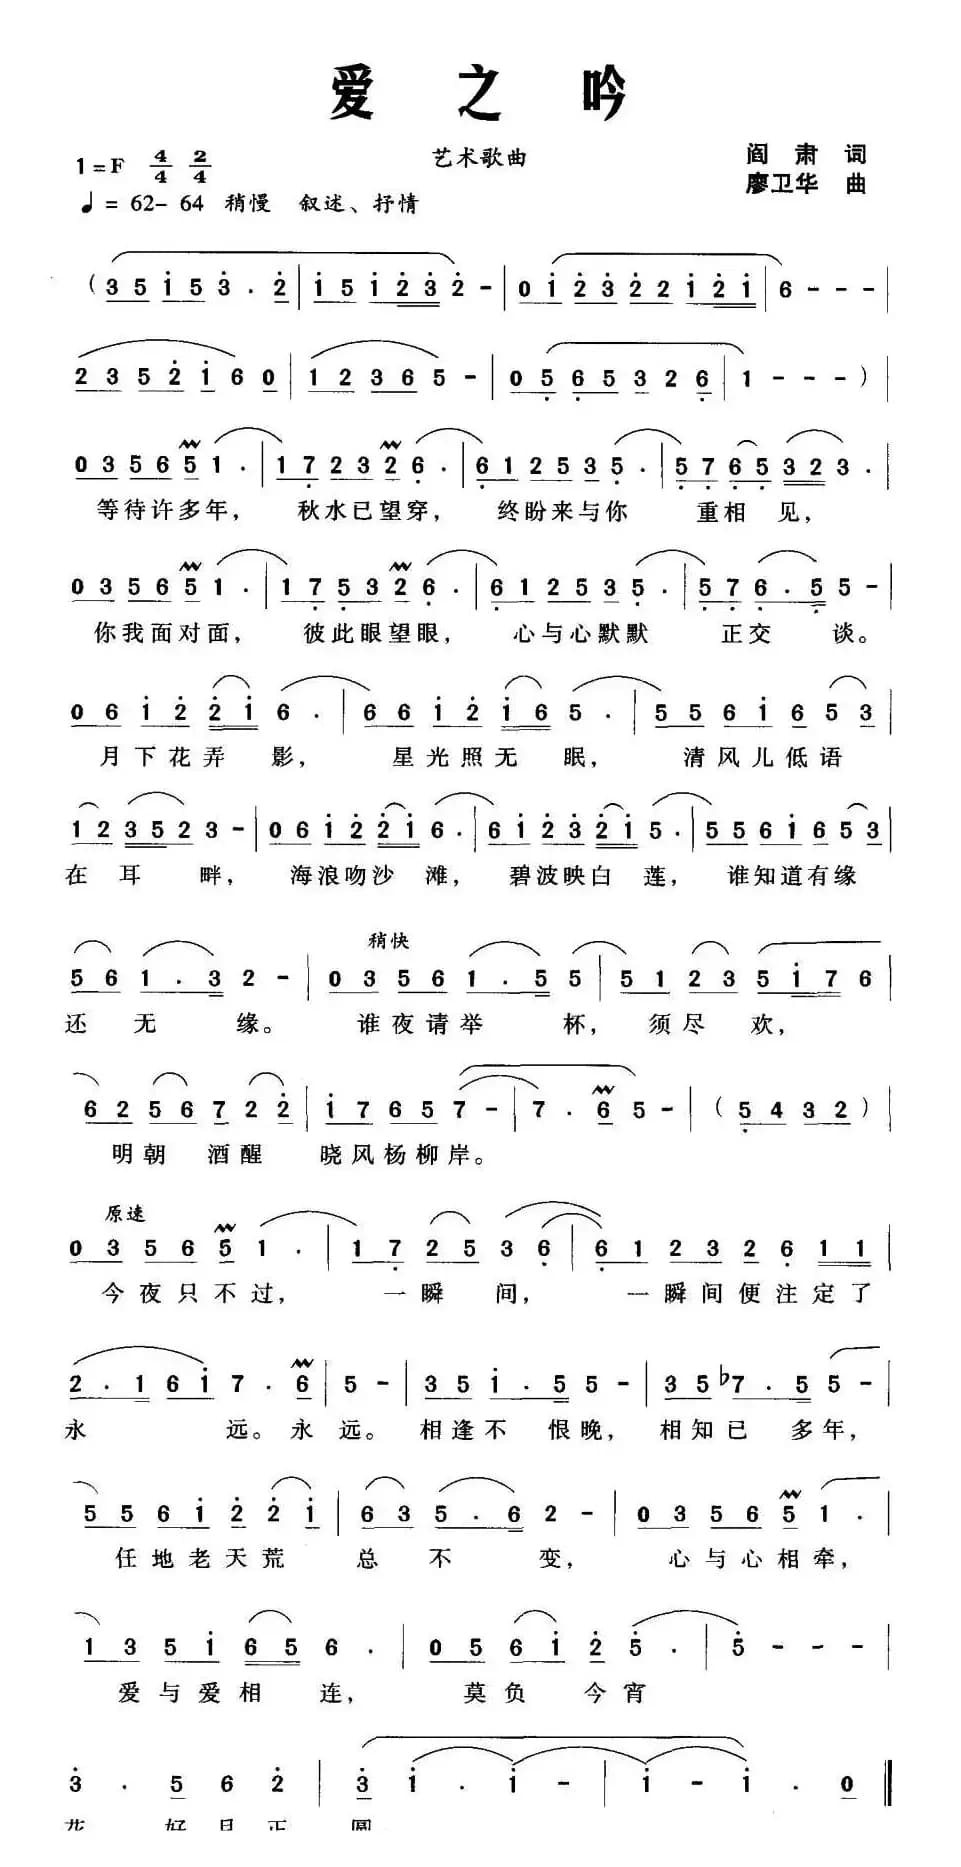 爱之吟
艺术歌曲
1=F 4/4 2/4
阎肃 词
廖卫华 曲
♩= 62- 64 稍慢 叙述、抒情
(3 5 i 5 3 . 2 | i 5 i 2 3 2 - | 0 i 2 3 2 2 i 2 i | 6 - - - |
2 3 5 2 i 6 0 | 1 2 3 6 5 - | 0 5 6 5 3 2 6 | 1 - - - )
0 3 5 6 5 1 . | 1 7 2 3 2 6 . | 6 1 2 5 3 5 . | 5 7 6 5 3 2 3 .
等待许多年, 秋水已望穿, 终盼来与你 重相见,
0 3 5 6 5 1 . | 1 7 5 3 2 6 . | 6 1 2 5 3 5 . | 5 7 6 . 5 5 -
你我面对面, 彼此眼望眼, 心与心默默 正交谈。
0 6 i 2 2 i 6 . | 6 6 i 2 i 6 5 . | 5 5 6 i 6 5 3 |
月下花弄影, 星光照无眠, 清风儿低语
1 2 3 5 2 3 - | 0 6 i 2 2 i 6 . | 6 i 2 3 2 i 5 . | 5 5 6 i 6 5 3 |
在耳畔, 海浪吻沙滩, 碧波映白莲, 谁知道有缘
稍快
5 6 1 . 3 2 - | 0 3 5 6 1 . 5 5 | 5 1 2 3 5 i 7 6 |
还无缘。 谁夜请举杯, 须尽欢,
6 2 5 6 7 2 2 | i 7 6 5 7 - | 7 . 6 5 - | ( 5 4 3 2 )
明朝酒醒 晓风杨柳岸。
原速
0 3 5 6 5 1 . | 1 7 2 5 3 6 | 6 1 2 3 2 6 1 1 |
今夜只不过, 一瞬间, 一瞬间便注定了
2 . 1 6 i 7 . 6 | 5 - | 3 5 i . 5 5 - | 3 5 ♭7 . 5 5 - |
永远。永远。 相逢不恨晚, 相知已多年,
5 5 6 i 2 2 i | 6 3 5 . 6 2 - | 0 3 5 6 5 1 . |
任地老天荒 总不变, 心与心相牵,
1 3 5 i 6 5 6 . | 0 5 6 i 2 5 . | 5 - - - |
爱与爱相连, 莫负今宵
3 . 5 6 2 | 3 i . i - | i - i . 0 ‖
花好月正圆